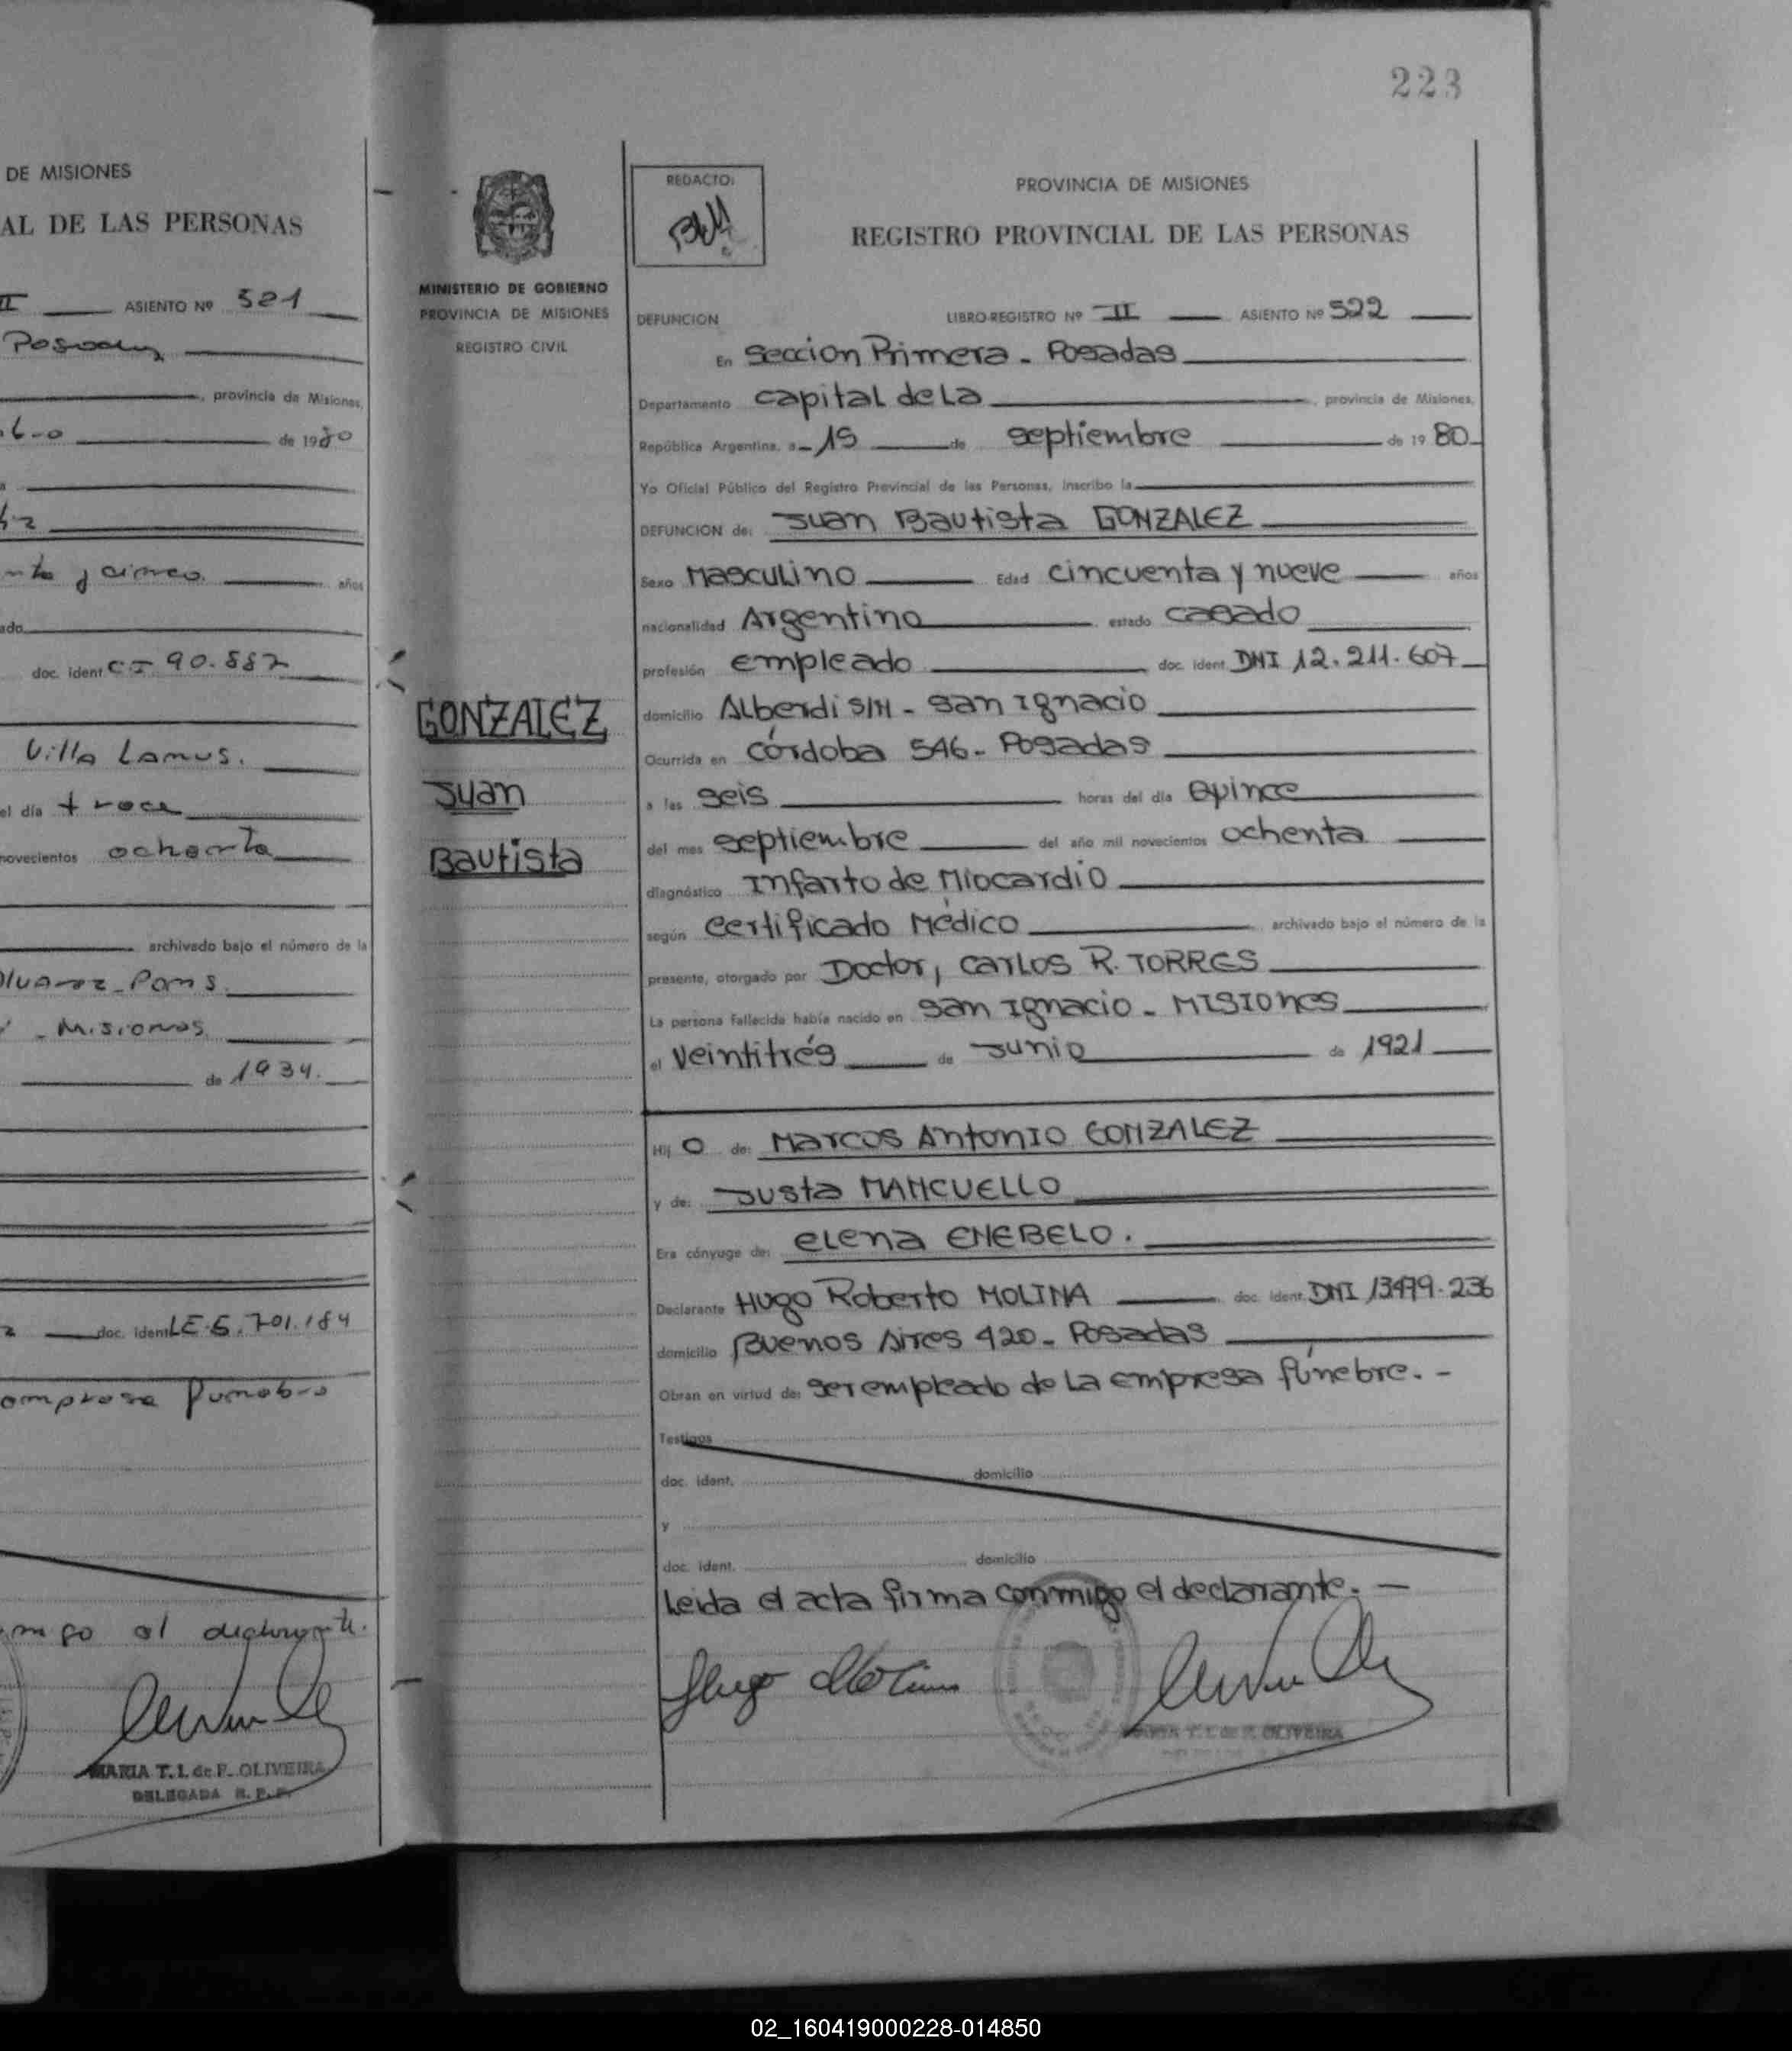 DE MISIONES
AL DE LAS PERSONAS
II ASIENTO Nº 521
Posadas
, provincia de Misiones,
de 1980
años
doc. ident. CI 90.887
Villa Lanus.
el día trece
novecientos ochenta
archivado bajo el número de la
Alvarez Pons
- Misiones
de 1934.
doc. ident. LE 5.701.184
empresa funebre
migo el declarante.
MARIA T. I. de F. OLIVEIRA
DELEGADA R. P. P.
223
MINISTERIO DE GOBIERNO
PROVINCIA DE MISIONES
REGISTRO CIVIL
GONZALEZ
Juan
Bautista
REDACTO:
PROVINCIA DE MISIONES
REGISTRO PROVINCIAL DE LAS PERSONAS
DEFUNCION LIBRO-REGISTRO Nº II ASIENTO Nº 522
En Seccion Primera - Posadas
Departamento capital de La , provincia de Misiones,
República Argentina, a 15 de septiembre de 19 80
Yo Oficial Público del Registro Provincial de las Personas, inscribo la
DEFUNCION de: Juan Bautista GONZALEZ
Sexo Masculino Edad cincuenta y nueve años
nacionalidad Argentino estado casado
profesión empleado doc. ident. DNI 12.211.607
domicilio Alberdi S/N - San Ignacio
Ocurrida en Córdoba 546 - Posadas
a las seis horas del día Quince
del mes septiembre del año mil novecientos ochenta
diagnóstico Infarto de Miocardio
según certificado Médico archivado bajo el número de la
presente, otorgado por Doctor, CARLOS R. TORRES
La persona fallecida había nacido en San Ignacio - MISIONES
el Veintitrés de Junio de 1921
Hij o de: Marcos Antonio GONZALEZ
y de: Justa MANCUELLO
Era cónyuge de: elena ENEBELO.
Declarante Hugo Roberto MOLINA doc. ident. DNI 13479.236
domicilio Buenos Aires 420 - Posadas
Obran en virtud de: ser empleado de La empresa fúnebre. -
Testigos
doc. ident. domicilio
y
doc. ident. domicilio
Leida el acta firma conmigo el declarante. -
Hugo Molina
MARIA T. I. de F. OLIVEIRA
02_160419000228-014850